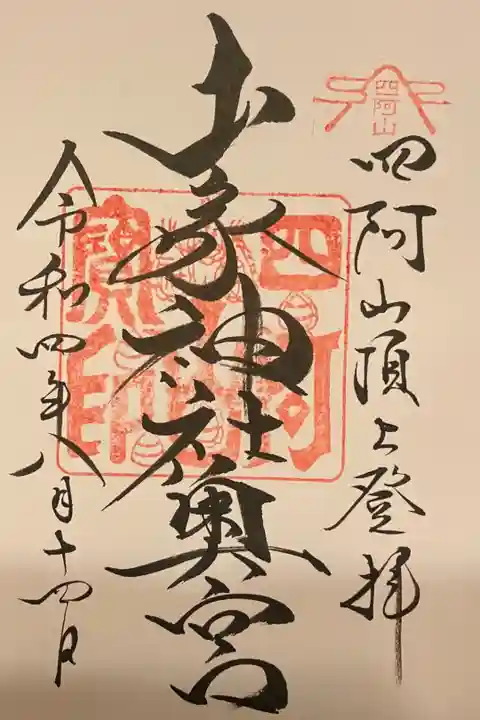 四阿山
四阿山頂上登拝
山家神社奥宮
令和四年八月十四日
四阿
寶印